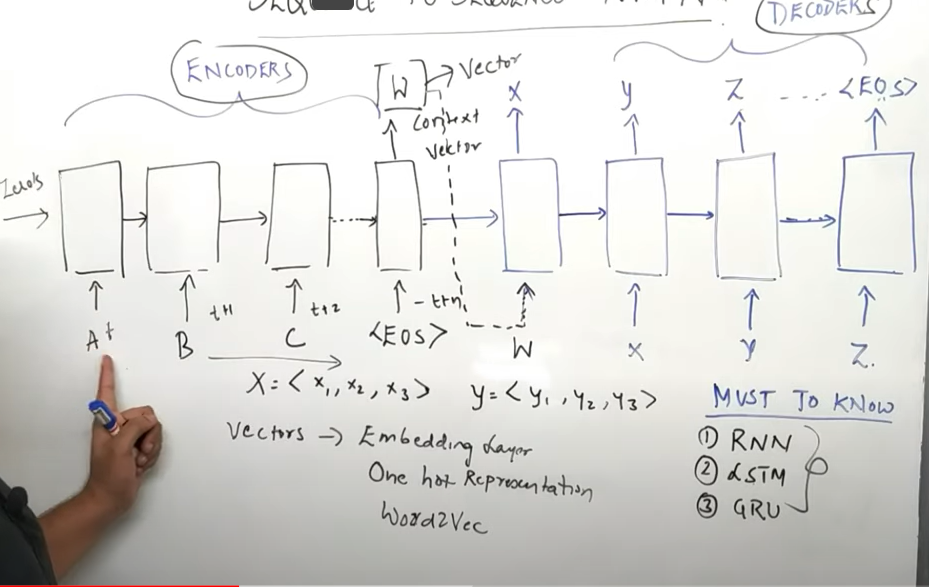 TO
DECODERS
ENCODERS
[W] → Vector
Context
Vector
X
y
Z .... <EOS>
Zeros
A t
B
t+1
C
t+2
<EOS>
- t+n
W
X
y
Z.
X = < x1, x2, x3 >
y = < y1, y2, y3 >
Vectors → Embedding Layer
One hot Representation
Word2Vec
MUST TO KNOW
① RNN
② LSTM
③ GRU